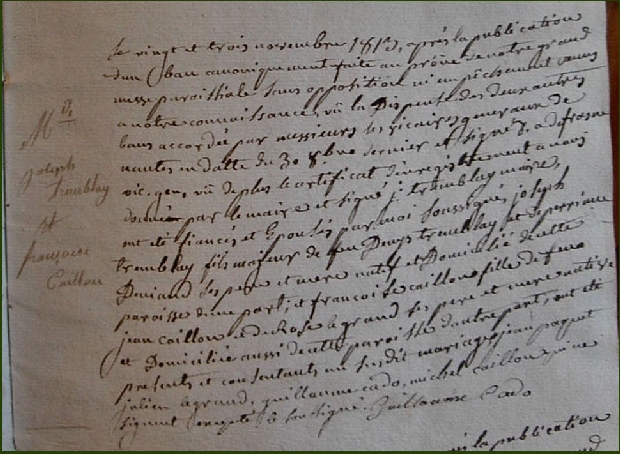 Le vingt et trois novembre 1813, après la publication
d'un ban canoniquement faite au prône de notre grand
messe paroissiale sans opposition ni empêchement venus
a notre connaissance, vû la Dispense des deux autres
bans accordée par messieurs les vicaires generaux de
nantes en datte du 30 8bre dernier et signé
vic. gen, vû de plus le certificat d'enregistrement a nous
donnée par le maire et signé j. tremblay maire,
ont été fiancés et Epousés par moi soussigné joseph
tremblay fils majeur de feu Denys tremblay et de perrine
Durand ses pere et mere natif et Domicilié de cette
paroisse d'une part; et francoise caillon fille de feu
jean caillon et de Rose legrand ses pere et mere native
et Domiciliée aussi de cette paroisse d'autre part; ont été
presents et consentants au susdit mariage jean paquet
julien legrand, guillaume cado, michel caillon qui ne
signent excepté le soussigné. Guillaume Cado
M.
joseph
tremblay
et
françoise
Caillon
la publication